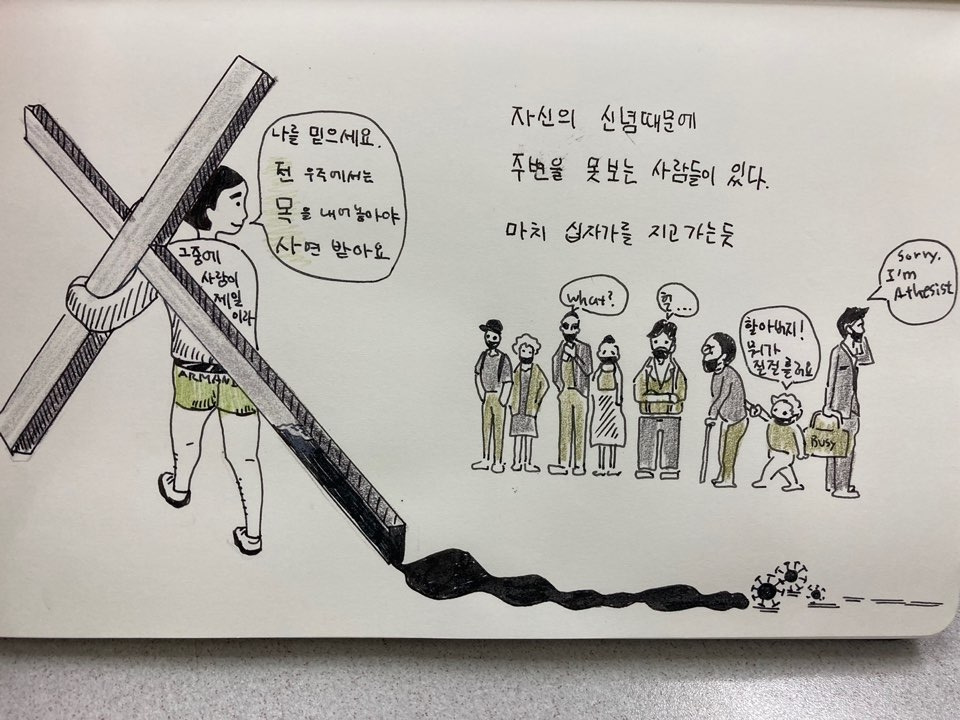 자신의 신념때문에
주변을 못보는 사람들이 있다.
마치 십자가를 지고가는듯
나를 믿으세요.
전 우주에서는
목을 내어놓아야
사면 받아요
그중에
사랑이
제일
이라
ARMANI
What?
헐...
할아버지!
뭐가
질질흘러요
Sorry.
I'm
Athesist
Busy